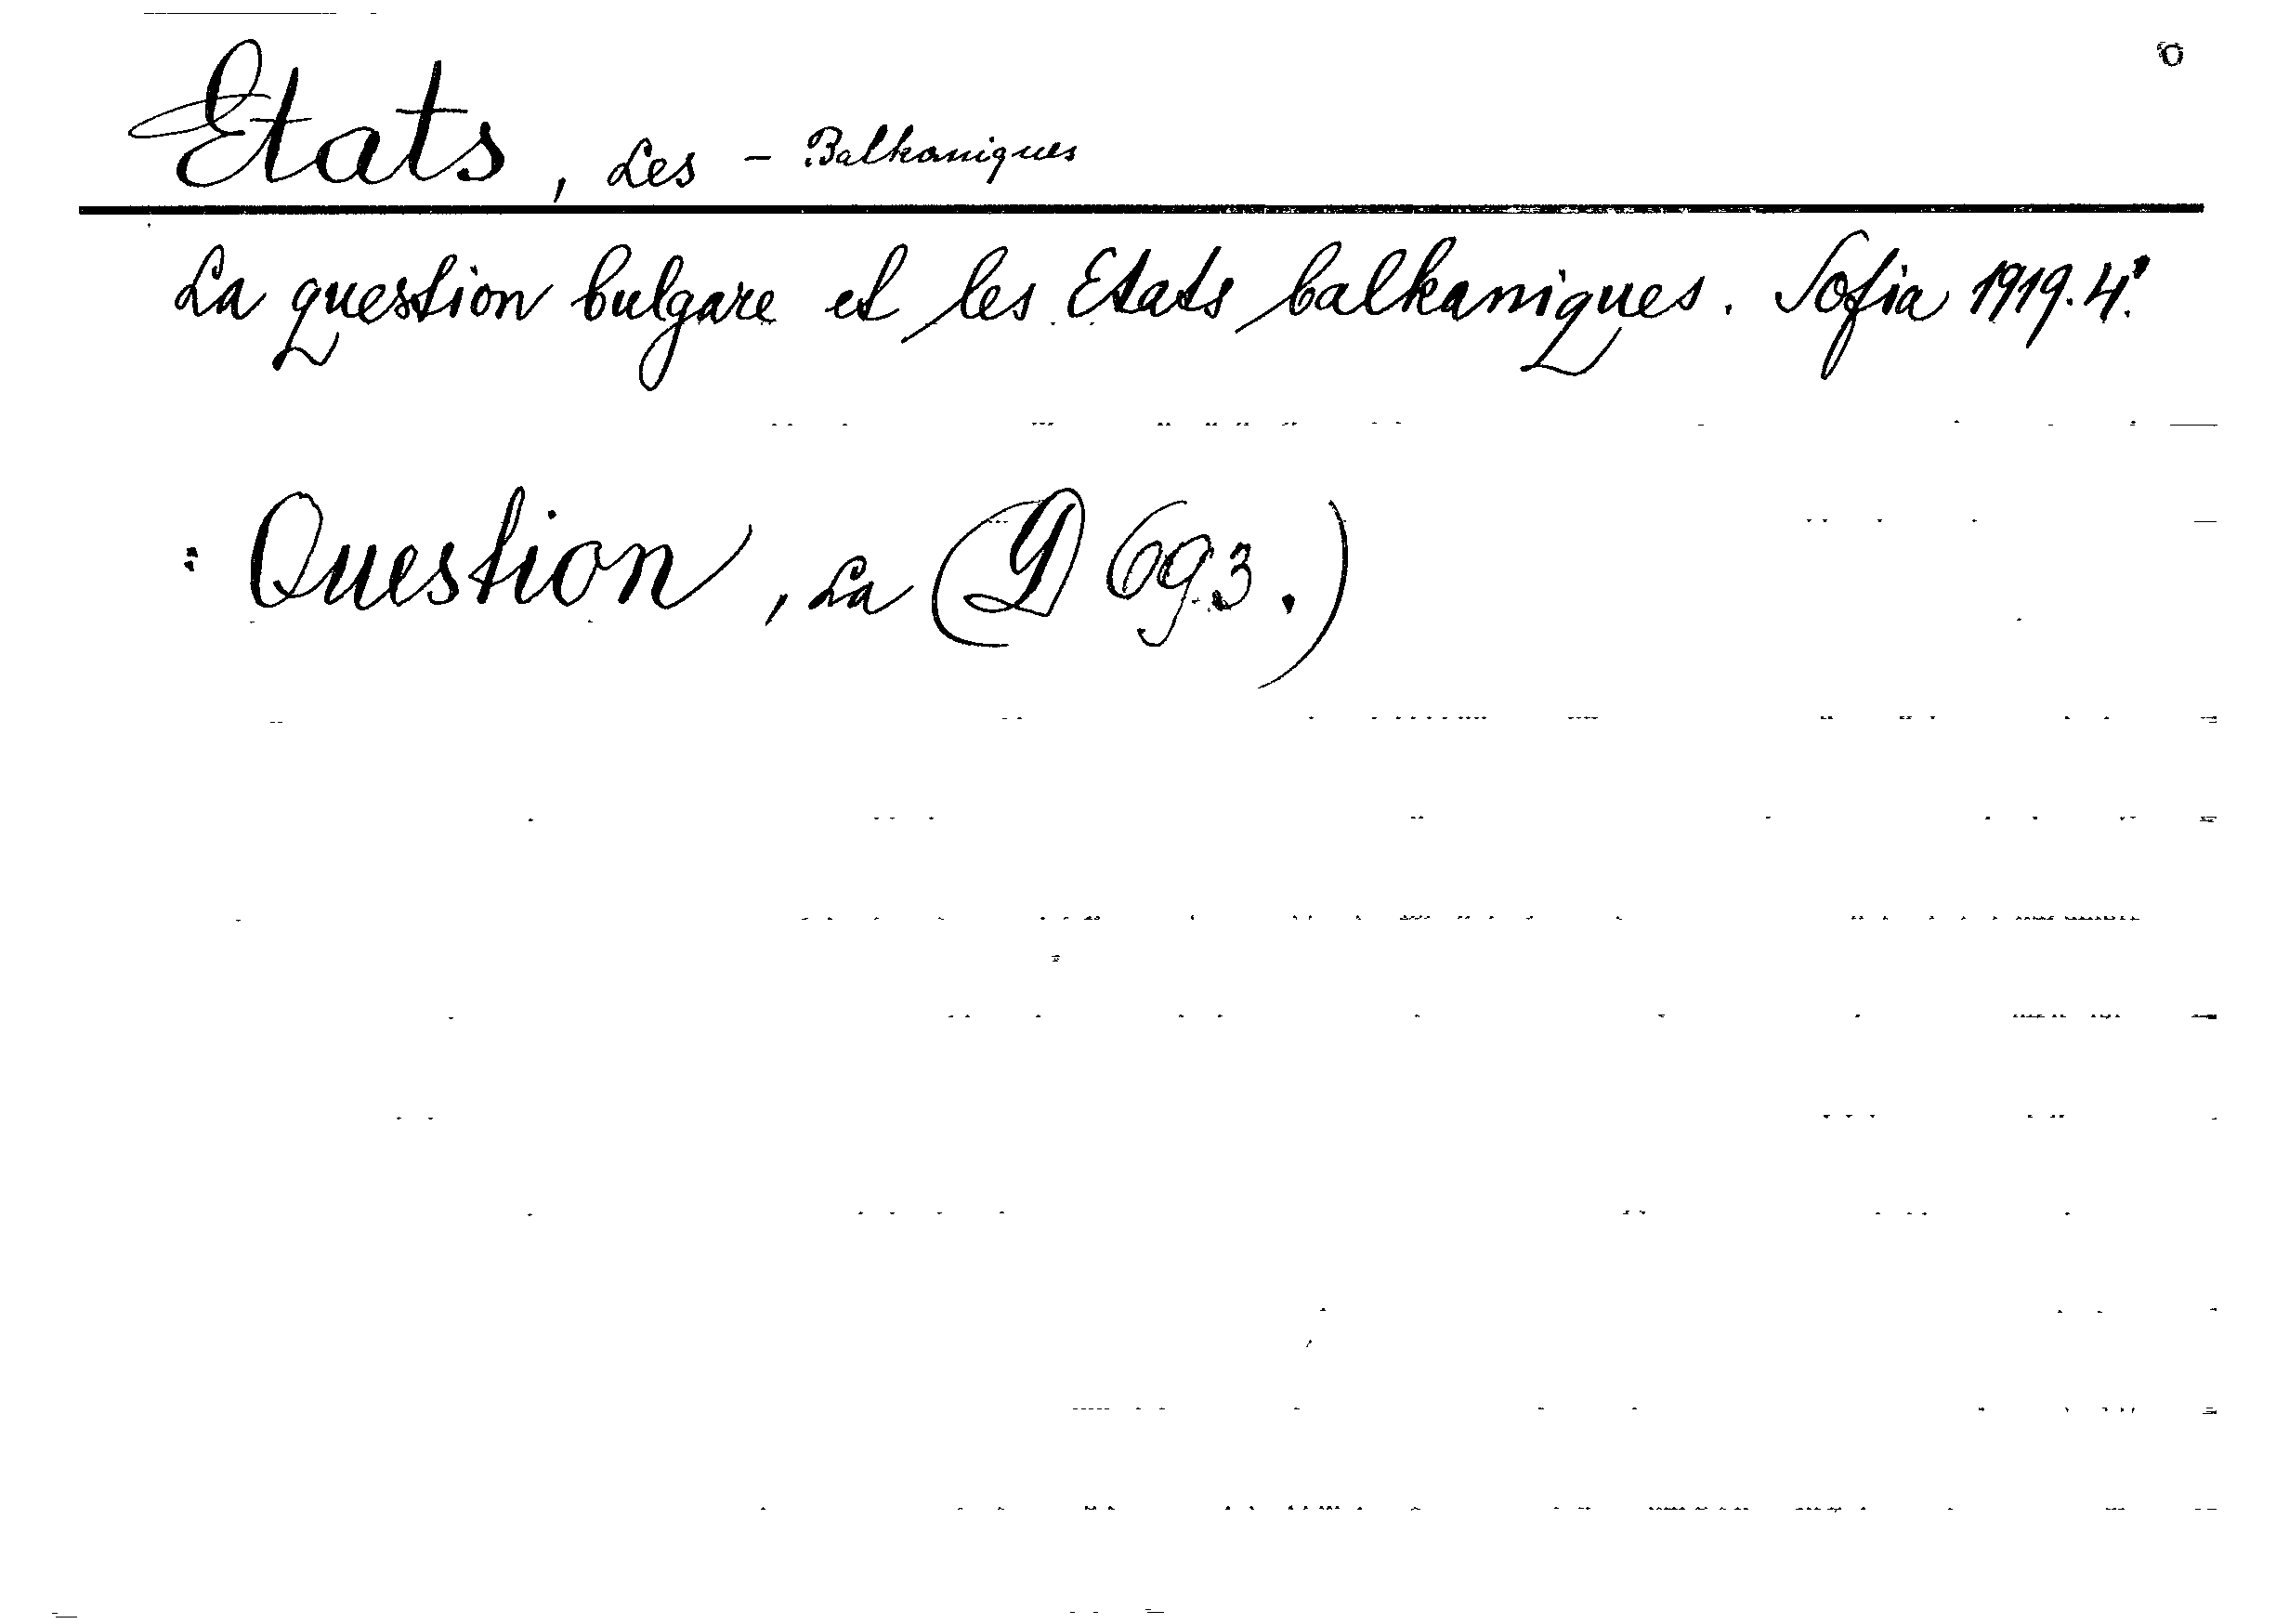 Etats, Les - Balkaniques
La question bulgare et les Etats balkaniques. Sofia 1919. 4°.
: Question, La (D 693.)